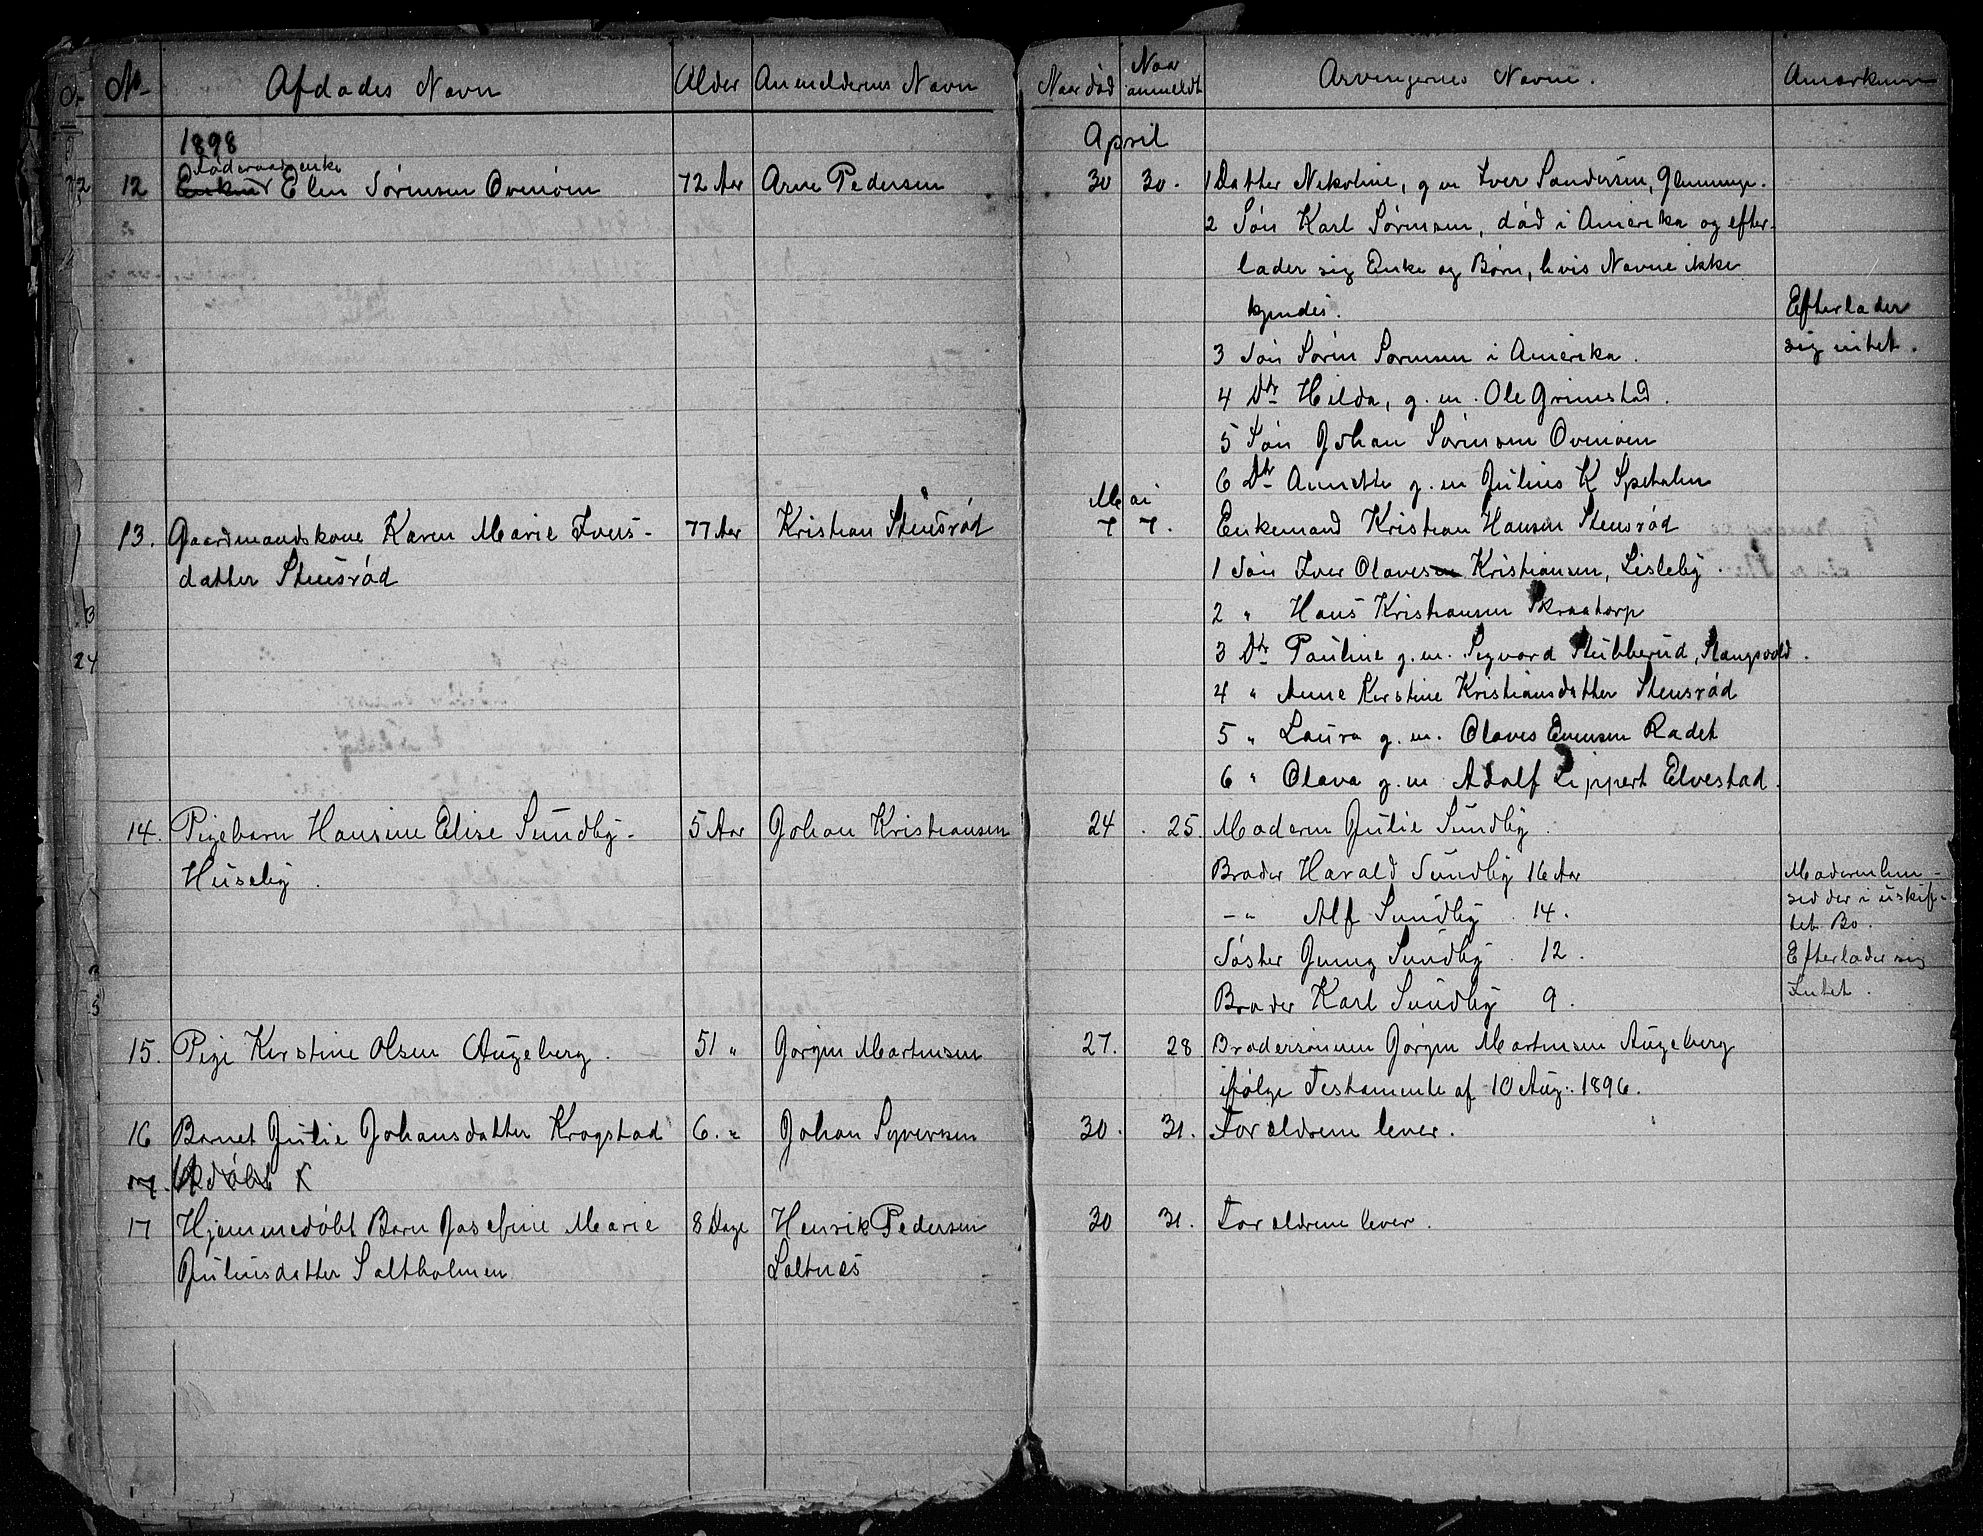 No Afdødes Navn Alder Anmelderens Navn Naar død Naar anmeldt Arvingernes Navne. Anmærkning
1898 April
Føderaadsenke
12 Enken Elen Sørensen Ovenøen 72 Aar Arne Pedersen 30 30. 1 Datter Nikoline, g m Iver Sandersen, Glemminge.
2 Søn Karl Sørensen, død i Amerika og efter-
lader sig Enke og Børn, hvis Navne ikke
kjendes. Efterlader
3 Søn Søren Sørensen i Amerika. sig intet.
4 Dtr Hilda, g. m. Ole Grimstad.
5 Søn Johan Sørensen Ovenøen
6 Dtr Annette g. m Julius K Spetalen
Mai
13. Gaardmandskone Karen Marie Ivers- 77 Aar Kristian Stensrød 7 7. Enkemand Kristian Hansen Stensrød
datter Stensrød 1 Søn Iver Olavesen Kristiansen, Lisleby.
2 " Hans Kristiansen Skraatorp
3 Dtr Pauline g. m. Sigvard Stubberud, Slangsvold.
4 " Anne Kirstine Kristiansdatter Stensrød
5 " Laura g. m. Olaves Evensen Rødet
6 " Olava g. m Adolf Lippert Elvestad.
14. Pigebarn Hansine Elise Sundby- 5 Aar Johan Kristiansen 24. 25. Moderen Julie Sundby.
Huseby. Broder Harald Sundby 16 Aar Moderen hen-
sidder i uskif-
-"- Alf Sundby. 14. tet Bo.
Søster Jenny Sundby. 12. Efterlader sig
Broder Karl Sundby 9. Intet.
15. Pige Kirstine Olsen Augeberg. 51 " Jørgen Martinsen 27. 28 Brodersønnen Jørgen Martinsen Augeberg
ifølge Testamente af 10 Aug. 1896.
16 Barnet Julie Johansdatter Krogstad 6. " Johan Syversen 30. 31. Forældrene lever.
17. Udøbt K
17 Hjemmedøbt Barn Josefine Marie 8 Dage Henrik Pedersen 30 31. Forældrene lever.
Juliusdatter Saltholmen Saltnes